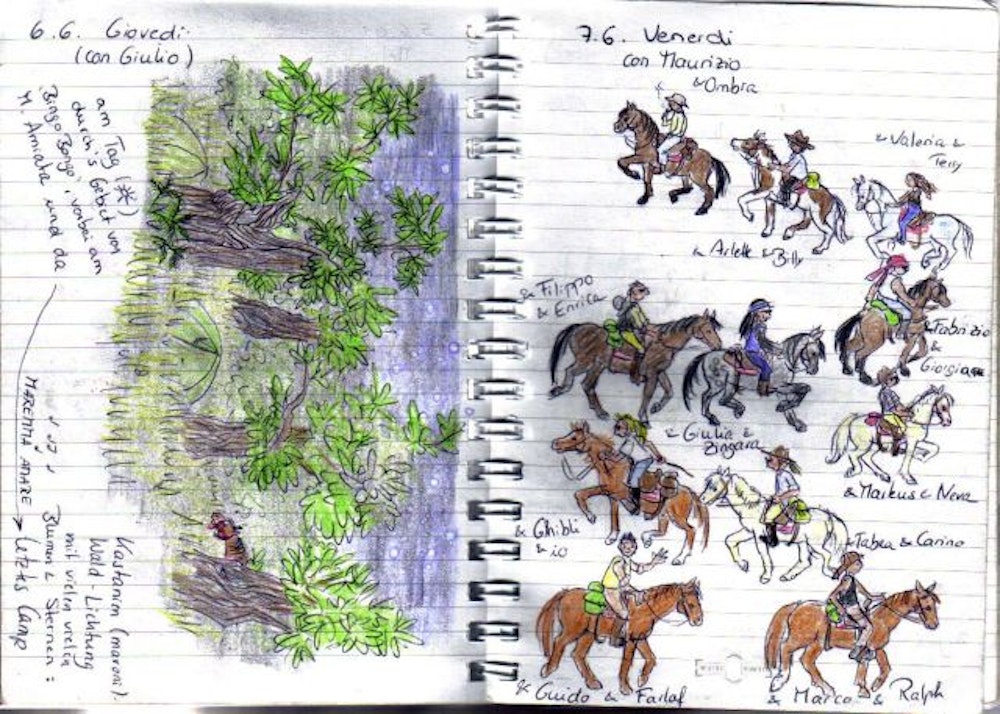 6.6. Giovedi
(con Giulio)
am Tag (☀)
durch's Gebiet von
'BingoBongo', vorbei am
M. Amiata und da
MAREMMA AMARE
Letztes Camp
Kastanien (maroni)
Wald Lichtung
mit vielen vielen
Blumen & Sternen:
7.6. Venerdi
con Maurizio
& Ombra
& Valeria &
& Arlett & Billy
& Filippo
& Enrica
& Fabrizio
&
Giorgiana
& Giulia &
Zingara
& Markus & Neva
& Ghibli
& io
& Tabea & Carino
& Guido & Farlaf
& Marco & Ralph